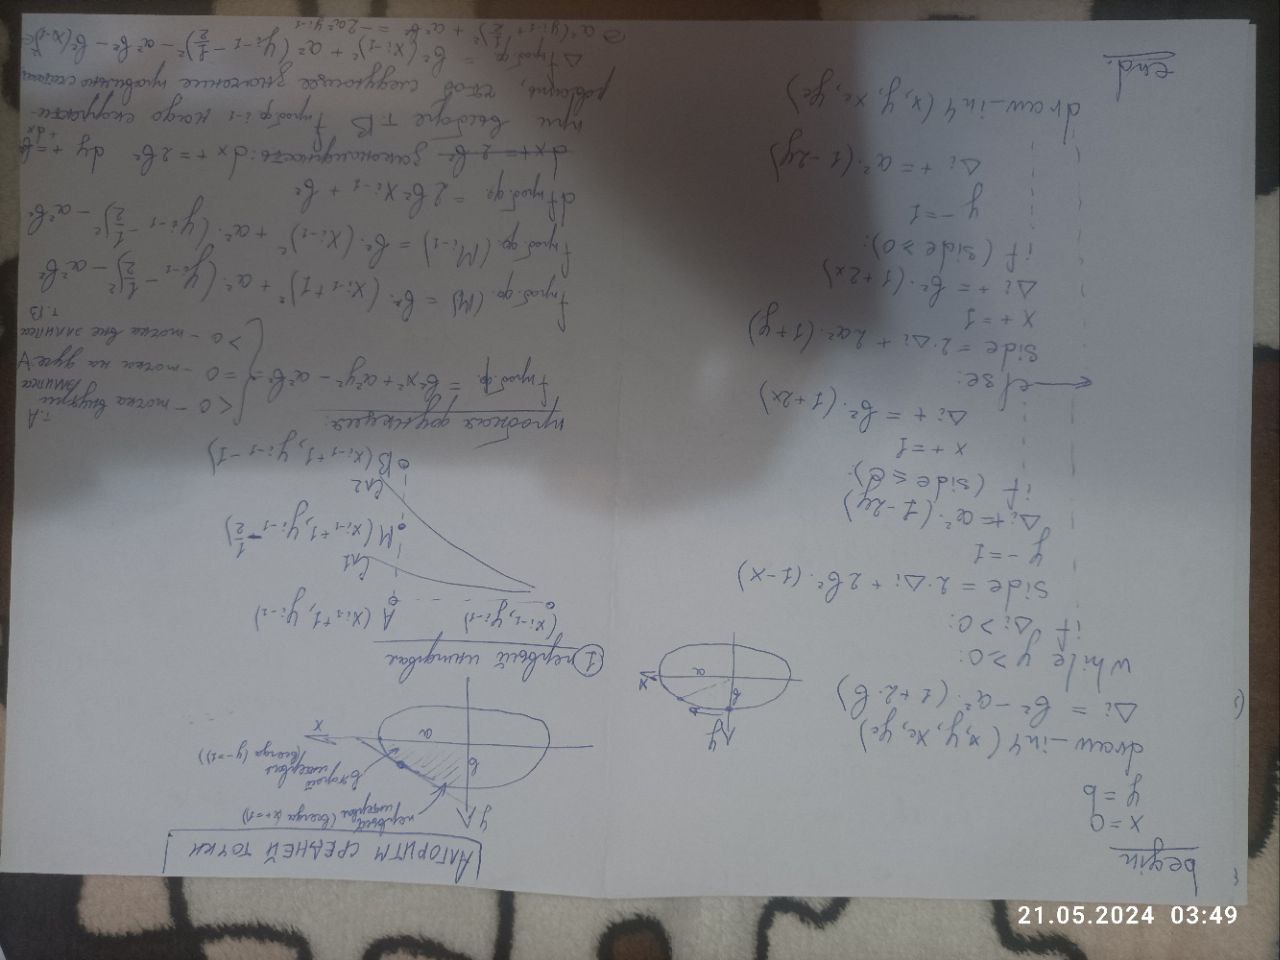 begin
x = 0
y = b
draw-in4 (x, y, xc, yc)
Δi = b² - a²·(1 + 2·b)
while y ≥ 0:
if Δi > 0:
side = 2·Δi + 2b²·(1-x)
y -= 1
Δi += a²·(1-2y)
if (side ≤ 0):
x += 1
Δi += b²·(1+2x)
else:
side = 2·Δi + 2a²·(1+y)
x += 1
Δi += b²·(1+2x)
if (side ≥ 0):
y -= 1
Δi += a²·(1-2y)
draw-in4 (x, y, xc, yc)
end.
y
b
a
x
АЛГОРИТМ СРЕДНЕЙ ТОЧКИ
y
первый интервал (всегда x+=1)
второй интервал (всегда (y-=1))
b
a
x
① первый интервал
(xi-1, yi-1)
A (xi-1+1, yi-1)
сл1
M (xi-1+1, yi-1 - 1/2)
сл2
B (xi-1+1, yi-1-1)
пробная функция:
fпроб.ф. = b²x² + a²y² - a²b² =
< 0 - точка внутри эллипса т. A
= 0 - точка на дуге A
> 0 - точка вне эллипса т. B
fпроб.ф. (Mi) = b²·(xi-1+1)² + a²·(yi-1 - 1/2)² - a²b²
fпроб.ф. (Mi-1) = b²·(xi-1)² + a²·(yi-1 - 1/2)² - a²b²
dfпроб.ф. = 2b²xi-1 + b²
dx += 2b² закономерность: dx += 2b² df += b² + dx
при выборе т. B fпроб.ф i-1 надо
чтоб следующее значение правильно
Δпроб.ф. = b²(xi-1)² + a²(yi-1 - 1/2)² - a²b² - b²(xi-1)²